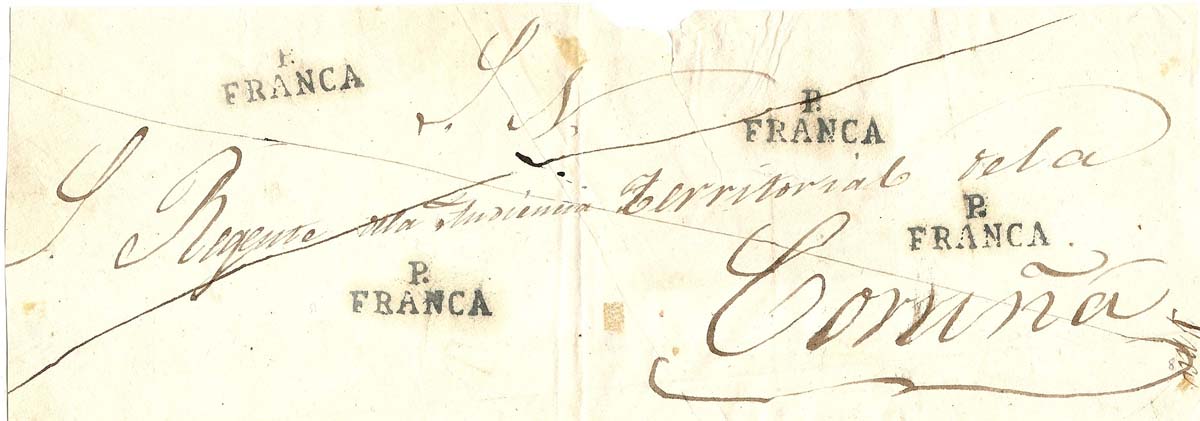 P.
FRANCA
S. N.
P.
FRANCA
S. Regente dela Audiencia Territorial dela
P.
FRANCA
P.
FRANCA
Coruña